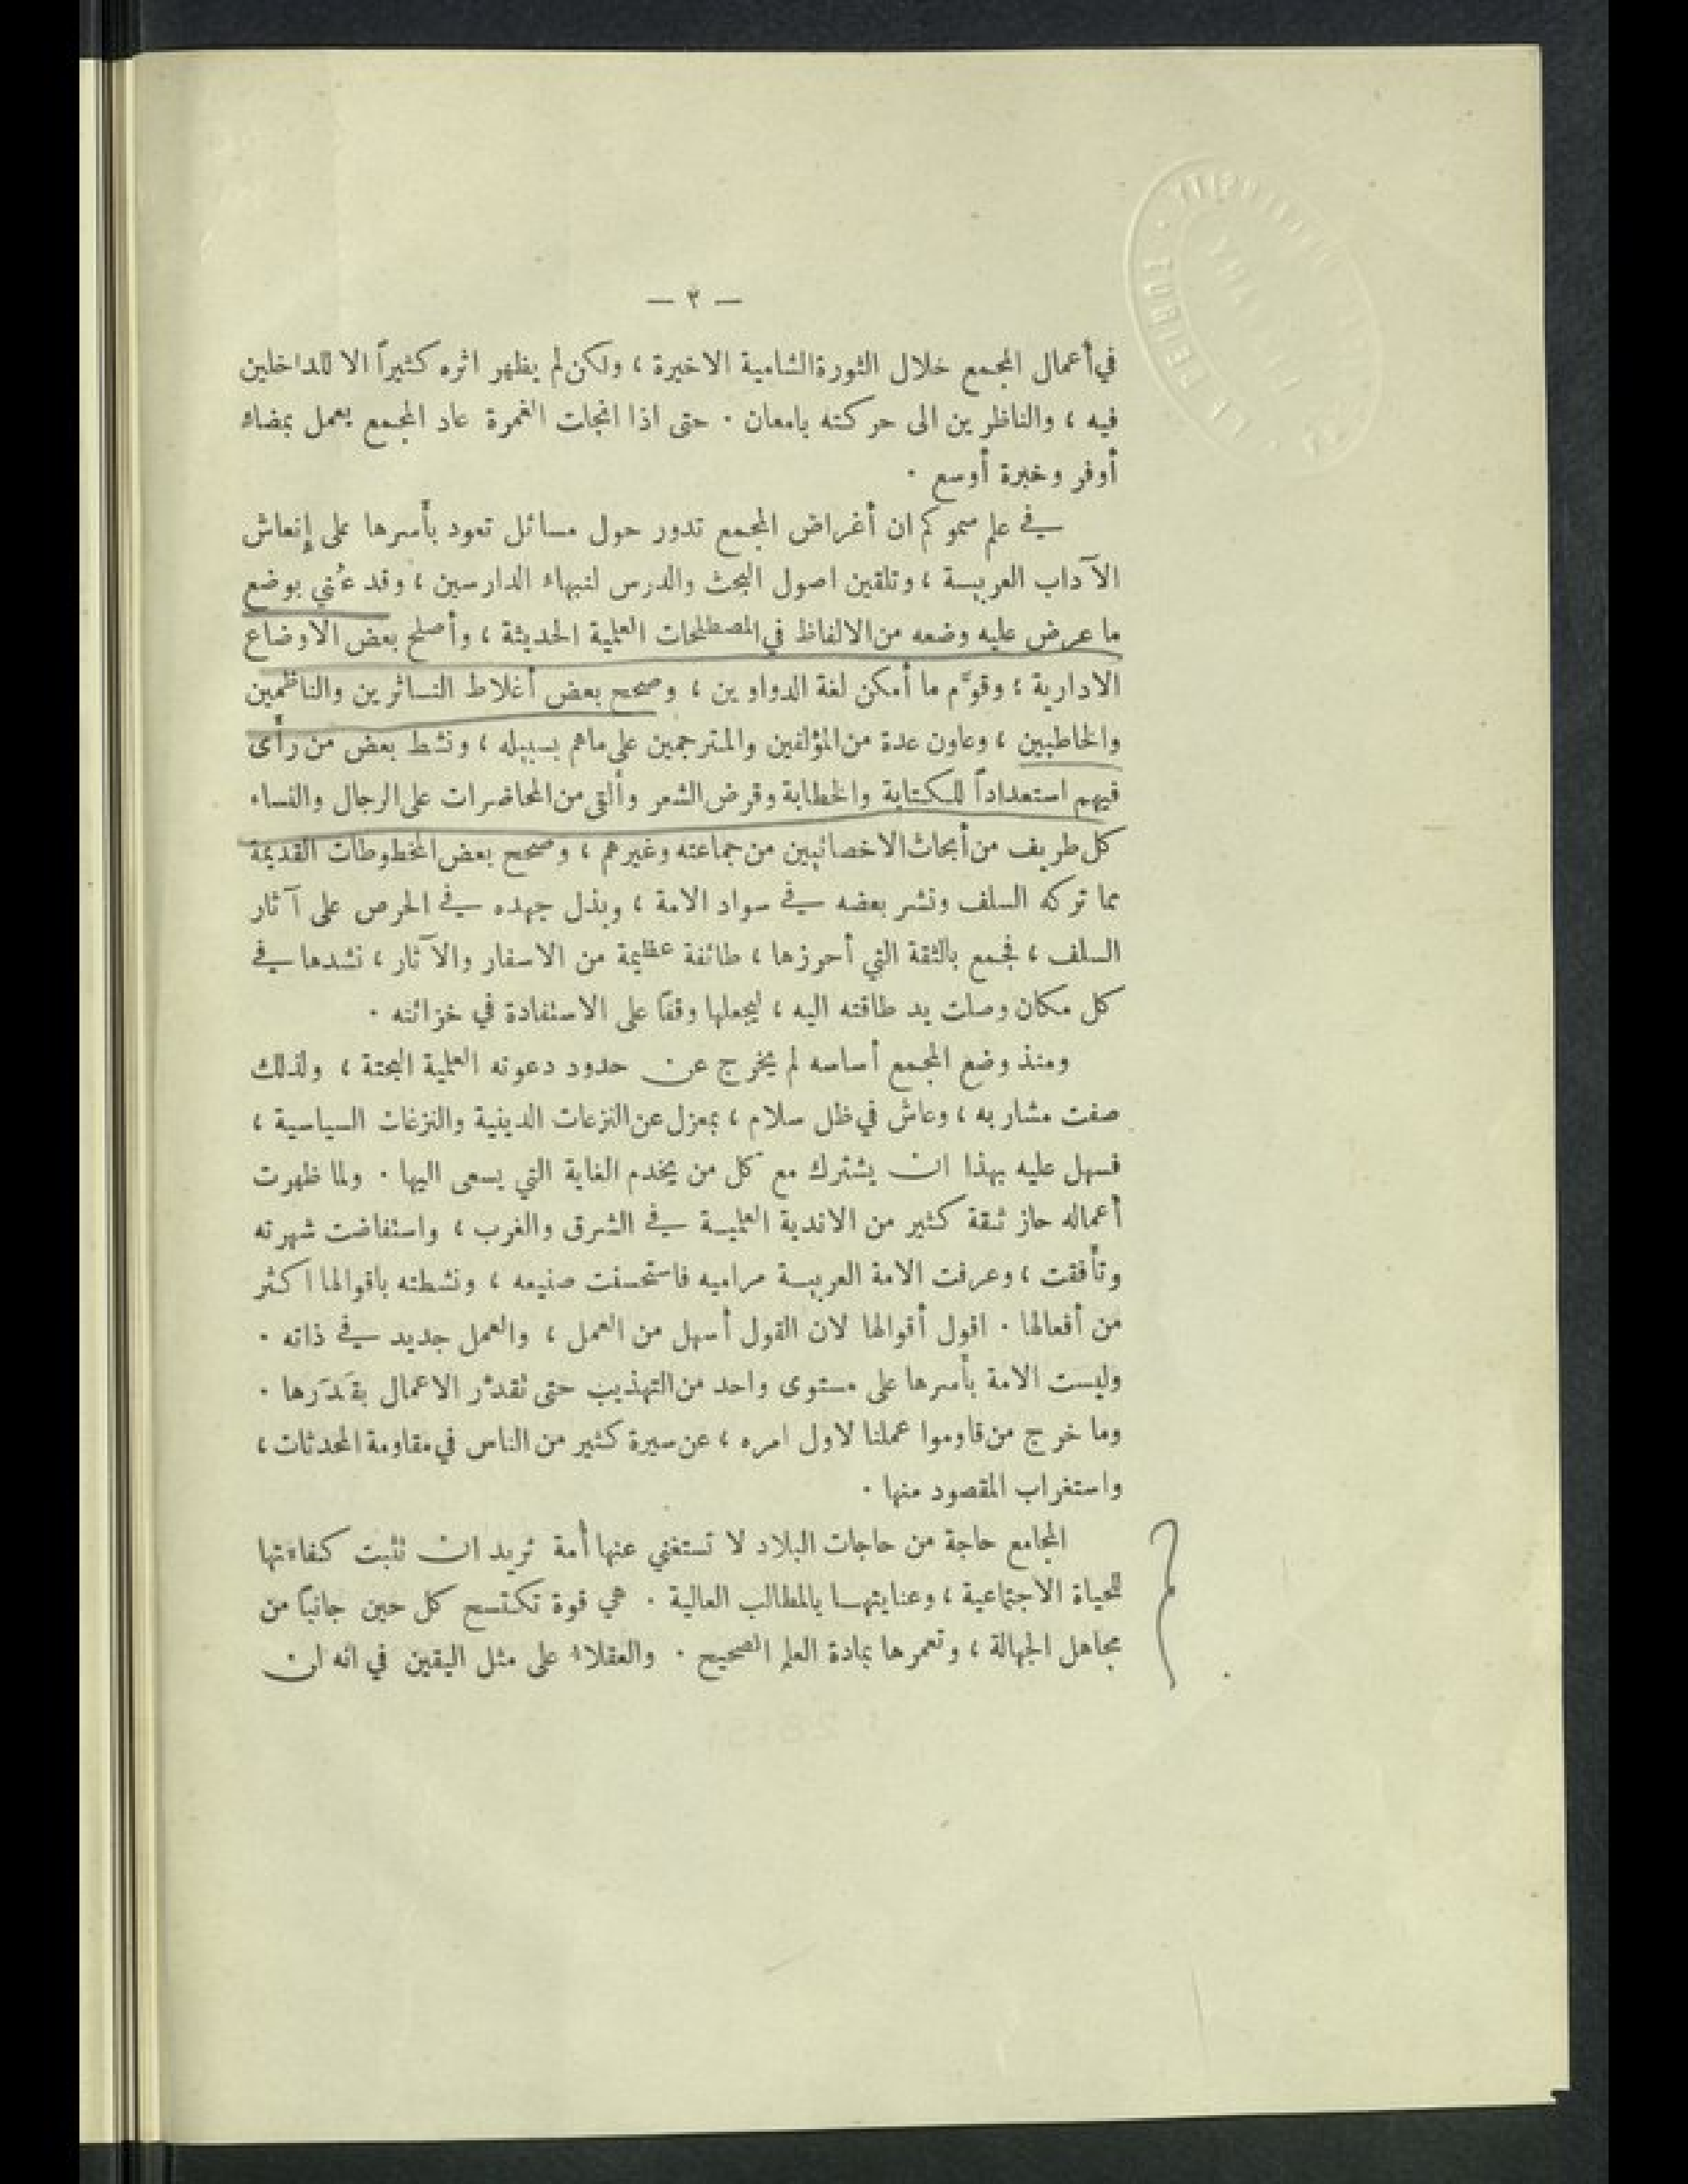 — ٣ —
في أعمال المجمع خلال الثورة الشامية الاخيرة ، ولكن لم يظهر اثره كثيراً الا للداخلين
فيه ، والناظرين الى حركته بامعان . حتى اذا انجلت الغمرة عاد المجمع يعمل بمضاء
أوفر وخبرة أوسع .
في علم سموكم ان أغراض المجمع تدور حول مسائل تعود بأسرها على إنعاش
الآداب العربية ، وتلقين اصول البحث والدرس لنبهاء الدارسين ، وقد عُني بوضع
ما عرض عليه وضعه من الالفاظ في المصطلحات العلمية الحديثة ، وأصلح بعض الاوضاع
الادارية ، وقوَّم ما أمكن لغة الدواوين ، وصحح بعض أغلاط الناثرين والناظمين
والخاطبين ، وعاون عدة من المؤلفين والمترجمين على ماهم بسبيله ، ونشط بعض من رأى
فيهم استعداداً للكتابة والخطابة وقرض الشعر وألقى من المحاضرات على الرجال والنساء
كل طريف من أبحاث الاخصائيين من جماعته وغيرهم ، وصحح بعض المخطوطات القديمة
مما تركه السلف ونشر بعضه في سواد الامة ، وبذل جهده في الحرص على آثار
السلف ، فجمع بالثقة التي أحرزها ، طائفة عظيمة من الاسفار والآثار ، نشدها في
كل مكان وصلت يد طاقته اليه ، ليجعلها وقفًا على الاستفادة في خزائنه .
ومنذ وضع المجمع أساسه لم يخرج عن حدود دعوته العلمية البحتة ، ولذلك
صفت مشاربه ، وعاش في ظل سلام ، بمعزل عن النزعات الدينية والنزغات السياسية ،
فسهل عليه بهذا ان يشترك مع كل من يخدم الغاية التي يسعى اليها . ولما ظهرت
أعماله حاز ثقة كثير من الاندية العلمية في الشرق والغرب ، واستفاضت شهرته
وتأفقت ، وعرفت الامة العربية مراميه فاستحسنت صنيعه ، ونشطته باقوالها اكثر
من أفعالها . اقول أقوالها لان القول أسهل من العمل ، والعمل جديد في ذاته .
وليست الامة بأسرها على مستوى واحد من التهذيب حتى تقدّر الاعمال بقَدَرها .
وما خرج من قاوموا عملنا لاول امره ، عن سيرة كثير من الناس في مقاومة المحدثات ،
واستغراب المقصود منها .
المجامع حاجة من حاجات البلاد لا تستغني عنها أمة تريد ان تثبت كفاءتها
للحياة الاجتماعية ، وعنايتها بالمطالب العالية . هي قوة تكتسح كل حين جانبًا من
مجاهل الجهالة ، وتعمرها بمادة العلم الصحيح . والعقلاء على مثل اليقين في انه لن